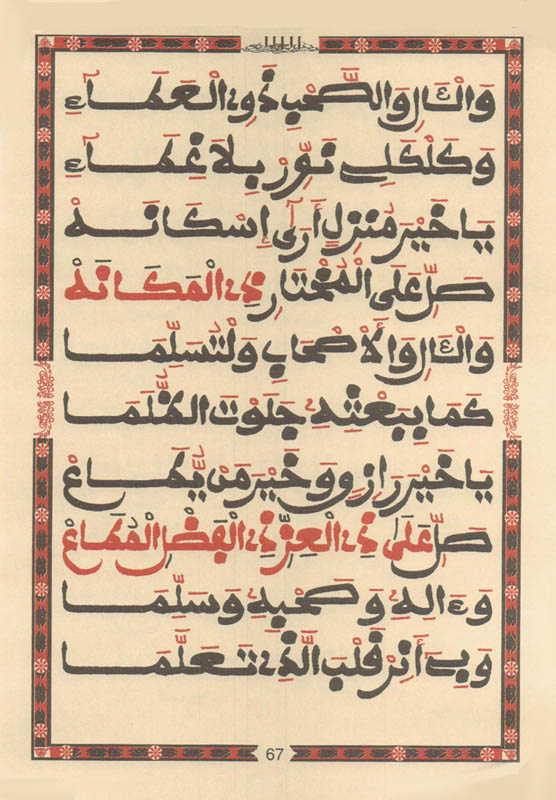 وَالْآلِ وَالصَّحْبِ ذَوِي الْعَطَاءِ
وَكَلْكَلِي نَوِّرْ بِلَا غِطَاءِ
يَا خَيْرَ مُنْزِلٍ أَرَى إِسْكَانَهْ
صَلِّ عَلَى الْمُخْتَارِ ذِي الْمَكَانَهْ
وَالْآلِ وَالْأَصْحَابِ وَلْتُسَلِّمَا
كَمَا بِبَعْثِهِ جَلَوْتَ الظُّلَمَا
يَا خَيْرَ رَازِقٍ وَخَيْرَ مَنْ يُطَاعْ
صَلِّ عَلَى ذِي الْعِزِّ ذِي الْفَضْلِ الْمُطَاعْ
وَءَالِهِ وَصَحْبِهِ وَسَلِّمَا
وَبِهِ أَنِرْ قَلْبَ الَّذِي تَعَلَّمَا
67